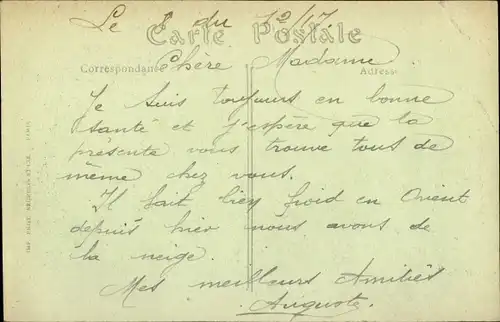 Le 8 du 12/17
Carte Postale
Correspondance
Adresse
Chère Madame
Je suis toujours en bonne
santé et j'espère que la
présente vous trouve tous de
même chez vous.
Il fait bien froid en Orient
depuis hier nous avons de
la neige.
Mes meilleurs Amitiés
Auguste